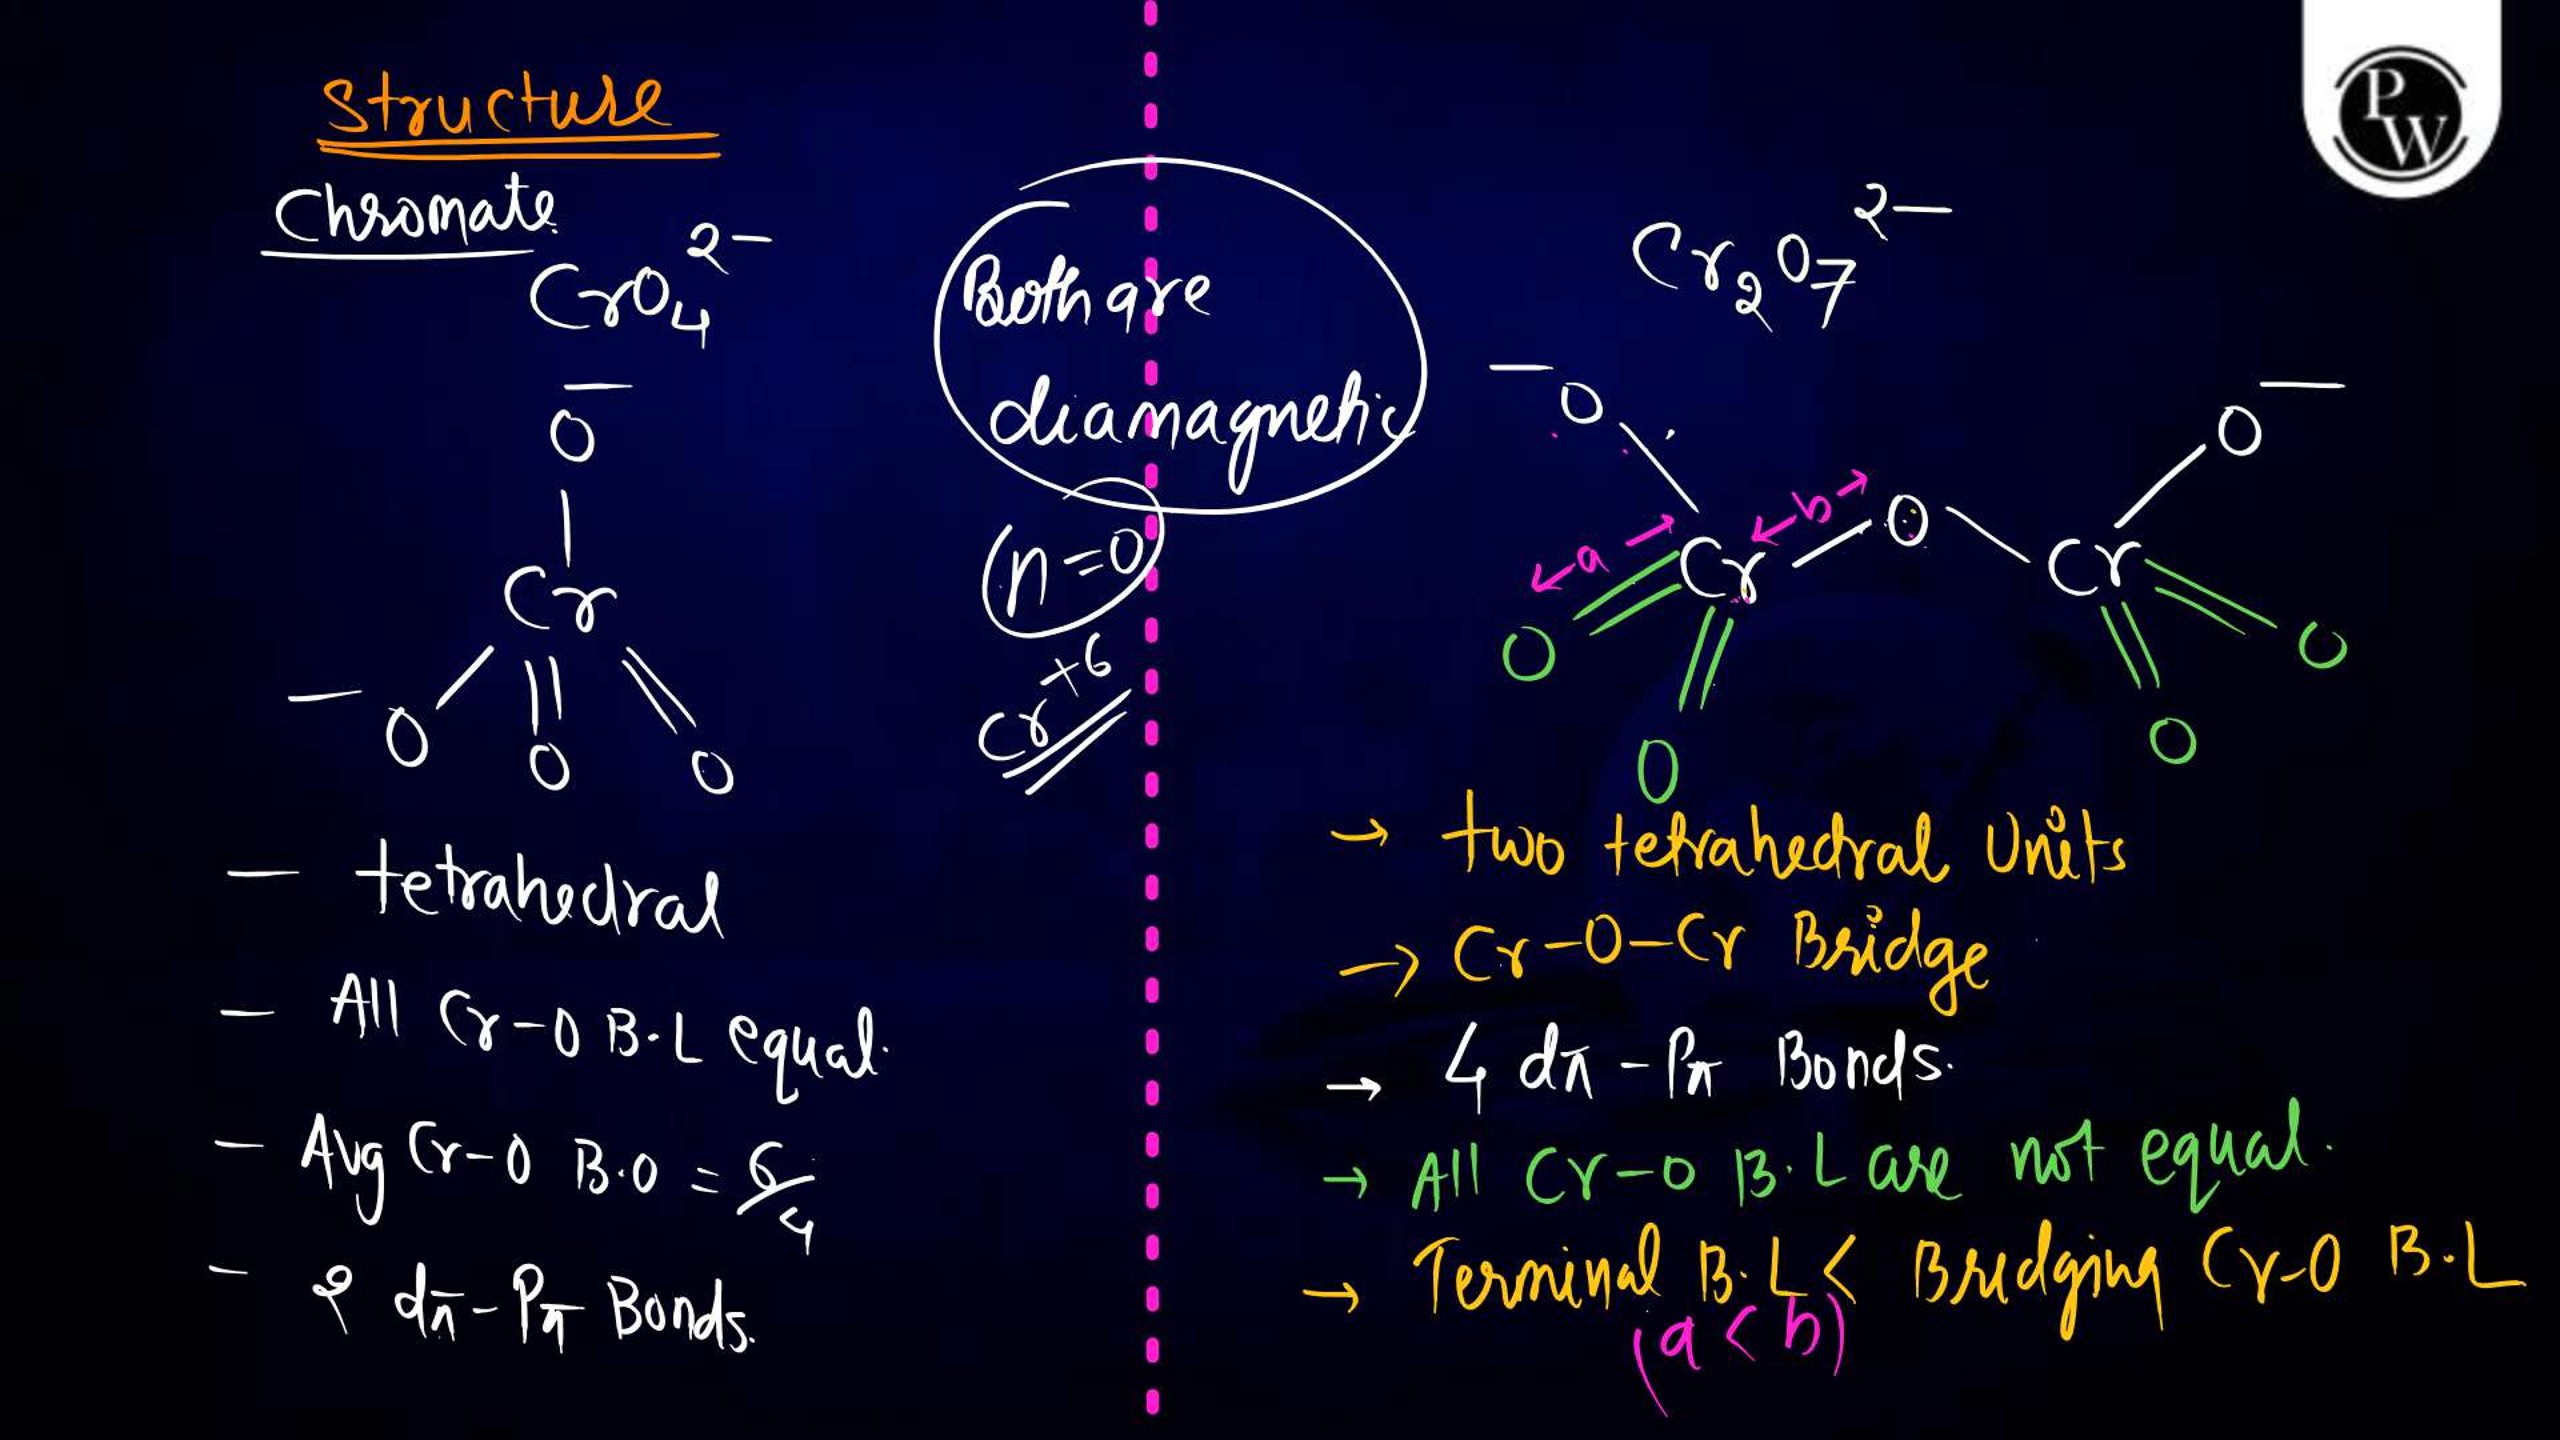 Structure
Chromate
CrO4 2-
O-
Cr
-O O O
- tetrahedral
- All Cr-O B.L equal.
- Avg Cr-O B.O = 6/4
- 2 dπ-Pπ Bonds.
Both are
diamagnetic
(n=0)
Cr+6
PW
Cr2O7 2-
-O O-
a b
Cr O Cr
O O O O
→ two tetrahedral Units
→ Cr-O-Cr Bridge
→ 4 dπ-Pπ Bonds.
→ All Cr-O B.L are not equal.
→ Terminal B.L < Bridging Cr-O B.L
(a < b)